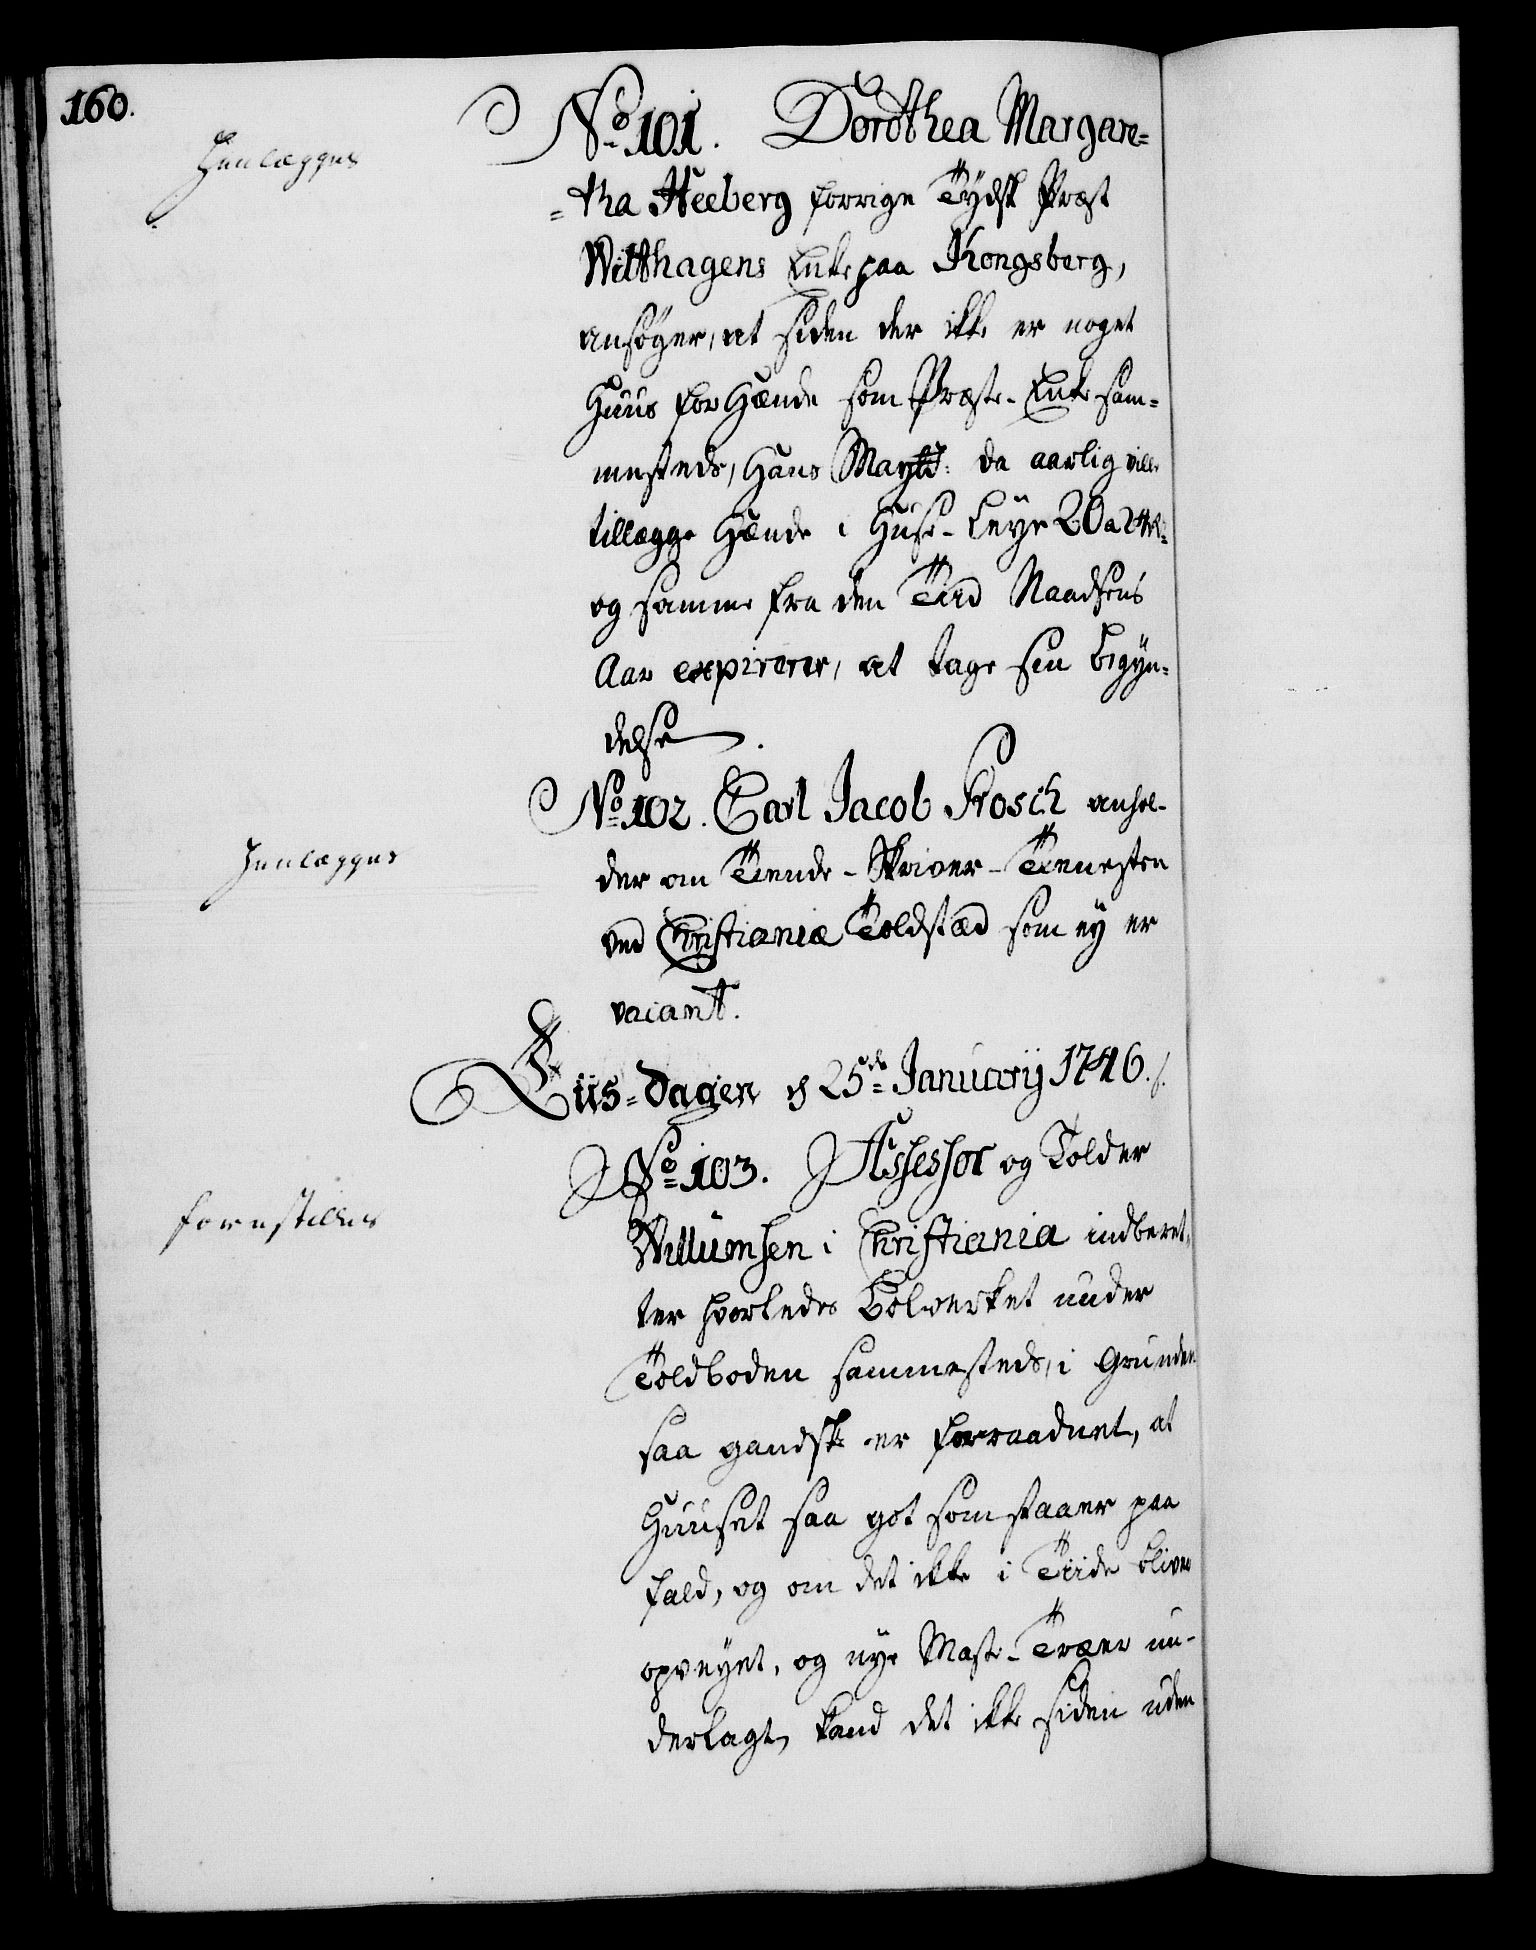 160.
Henlægges
No 101. Dorothea Margare-
=tha Heeberg forrige Tydsk Præst
Witthagens Enke paa Kongsberg,
ansøger, at siden der ikke er noget
Huus for Hænde som Præste-Enke sam-
mesteds, Hans Maytt: da aarlig ville
tillægge Hænde i Huse-Leye 20 a
og samme fra den Tiid Naadsens
Aar expirerer, at tage sin begÿn-
delse.
Henlægges
No 102. Carl Jacob Frosch anhol-
der om Tiende-Skriver-Tienesten
ved Christianiæ Toldstæd som eÿ er
vacant.
Tiis-dagen d 25de Januarij 1746.
forestilles
No 103. Assessor og Tolder
Willumsen i Christiania indberet-
ter hvorledes Bolverket under
Toldboden sammesteds, i Grunden
saa gandske er forraadnet, at
Huuset saa got som staaer paa
fald, og om det ikke i Tiide bliver
opveyet, og nye Maste-Træer un-
derlagt, kand det ikke siden uden